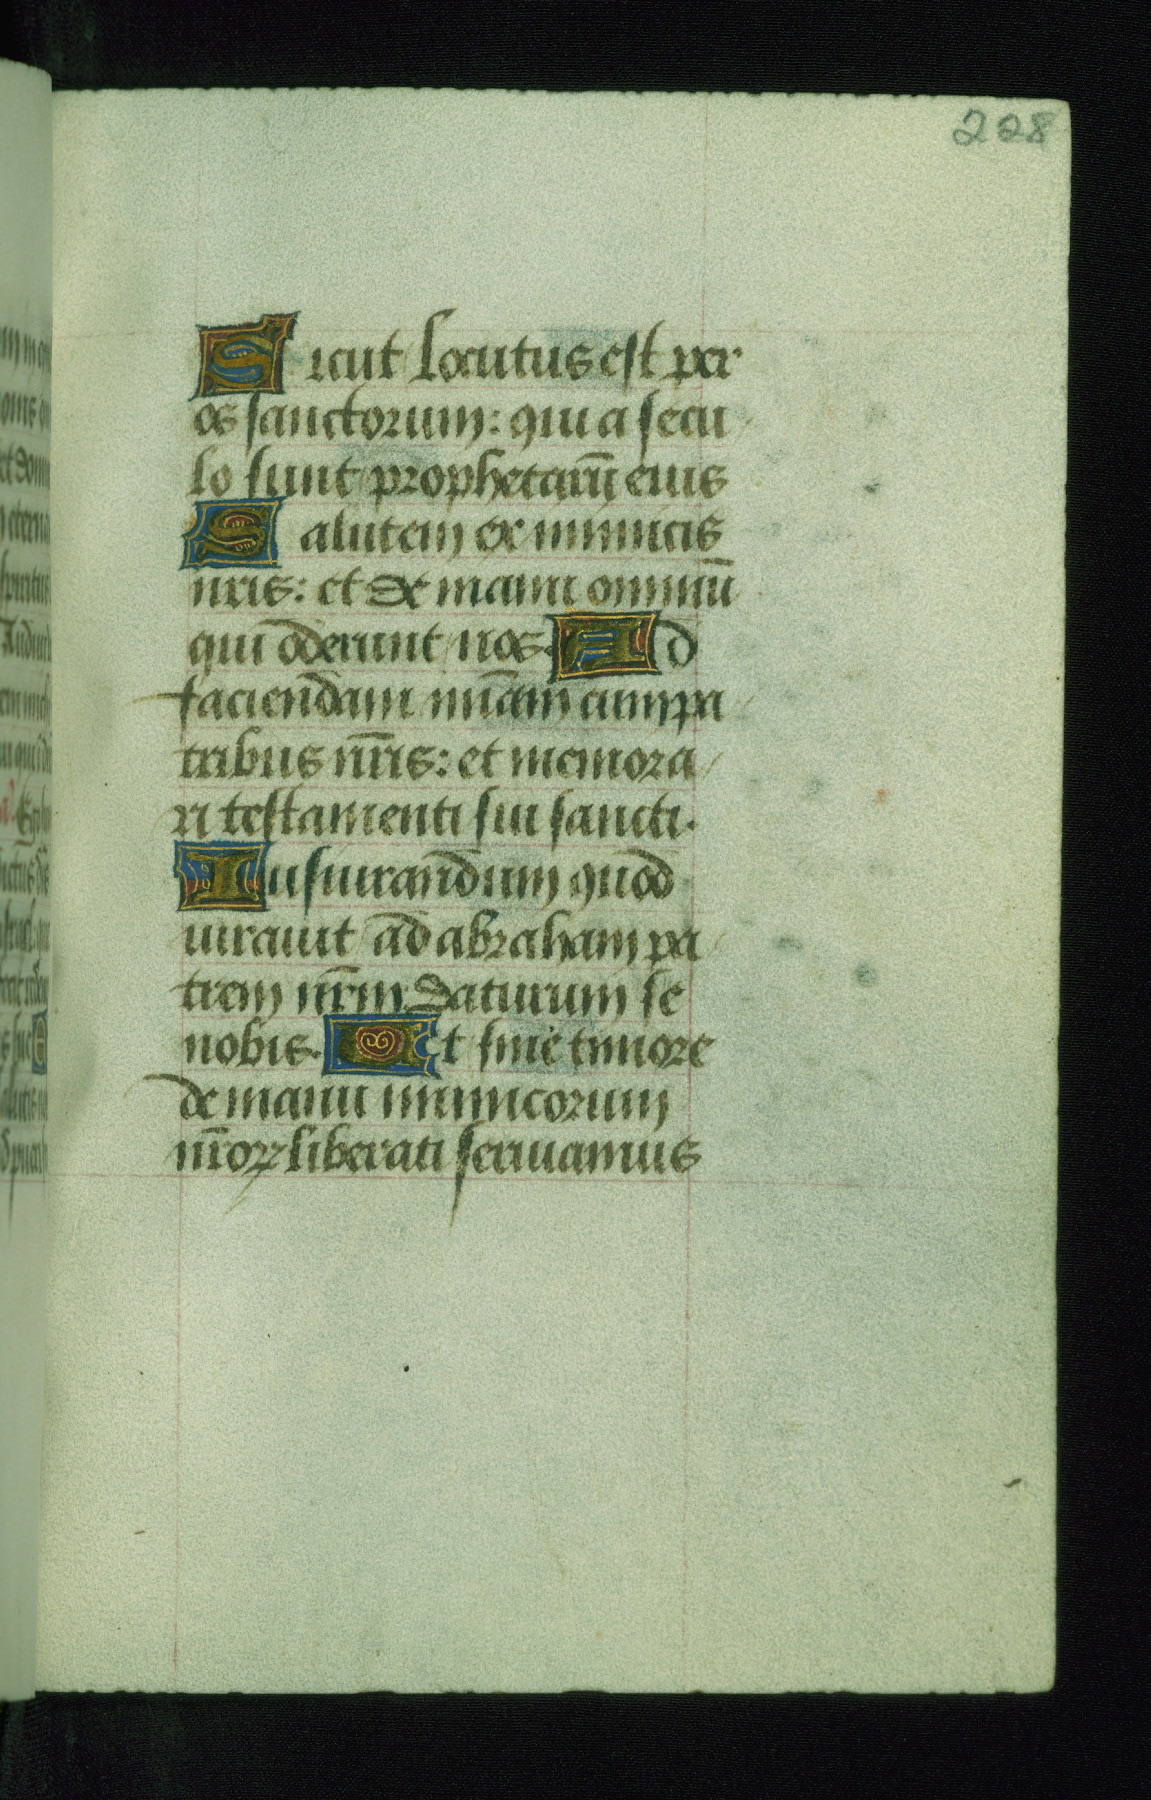 228
Sicut locutus est per
os sanctorum: qui a secu
lo sunt prophetarū eius
Salutem ex inimicis
nr̄is: et de manu omniū
qui oderunt nos. Ad
faciendam mīam cum pa
tribus nr̄is: et memora
ri testamenti sui sancti.
Iusiurandum quod
iurauit ad abraham pa
trem nr̄m daturum se
nobis. Ut sine timore
de manu inimicorum
nr̄oꝝ liberati seruiamus